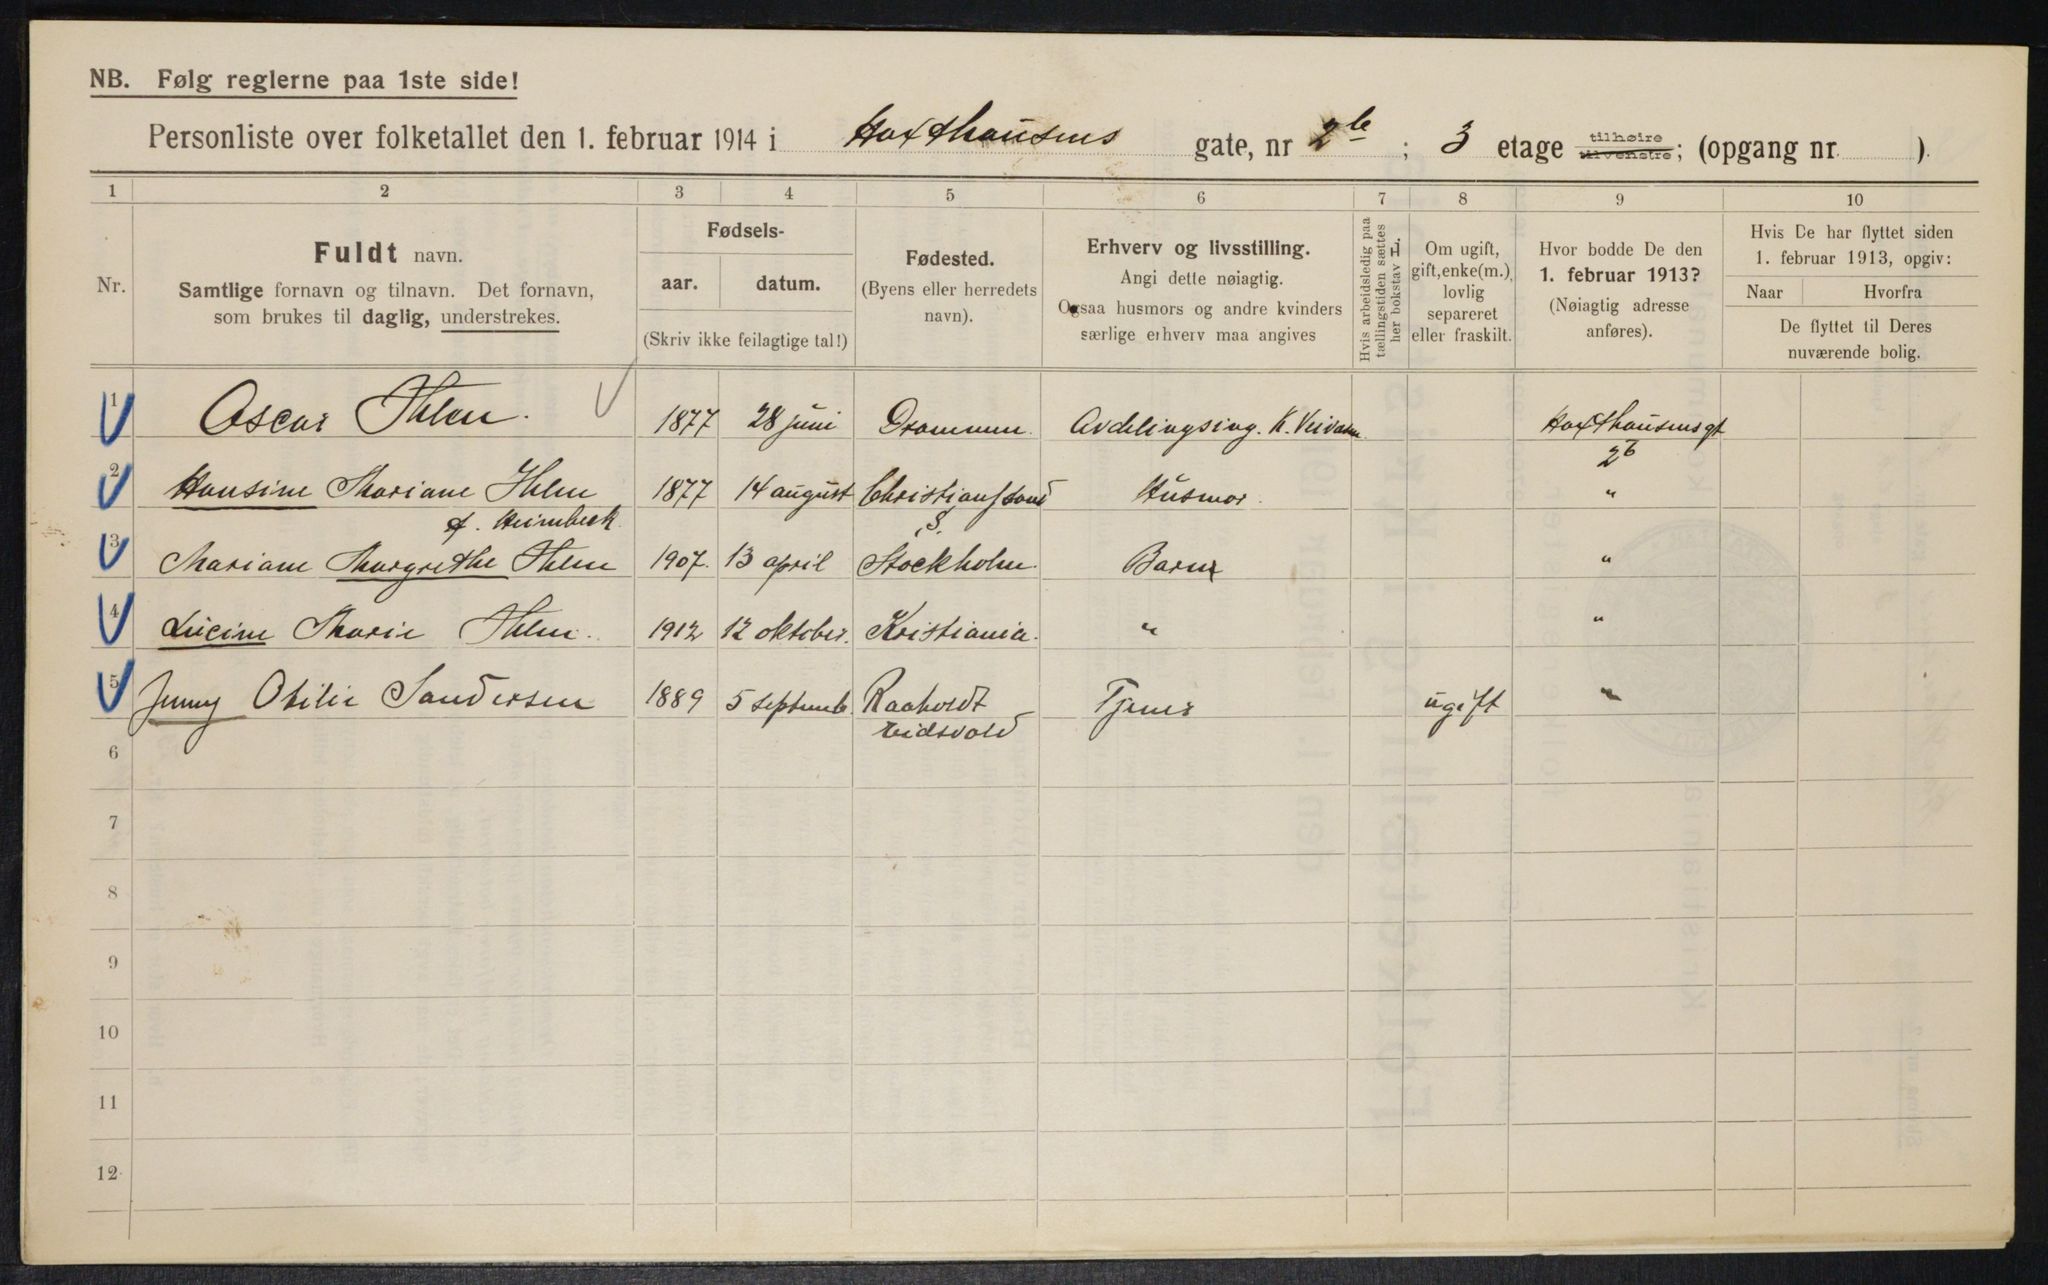 NB. Følg reglerne paa 1ste side!
Personliste over folketallet den 1. februar 1914 i Haxthausens gate, nr 2b ; 3 etage tilhøire tilvenstre; (opgang nr. ).
1 2 3 4 5 6 7 8 9 10
Nr.
Fuldt navn.
Samtlige fornavn og tilnavn. Det fornavn,
som brukes til daglig, understrekes.
Fødsels-
aar. datum.
(Skriv ikke feilagtige tal!)
Fødested.
(Byens eller herredets
navn).
Erhverv og livsstilling.
Angi dette nøiagtig.
Ogsaa husmors og andre kvinders
særlige erhverv maa angives
Hvis arbeidsledig paa
tællingstiden sættes
her bokstav l
Om ugift,
gift, enke(m.),
lovlig
separeret
eller fraskilt.
Hvor bodde De den
1. februar 1913?
(Nøiagtig adresse
anføres).
Hvis De har flyttet siden
1. februar 1913, opgiv:
Naar Hvorfra
De flyttet til Deres
nuværende bolig.
1 Oscar Ihlen. 1877 28 juni Drammen Avdelingsing. K. Veivæsn. Haxthausensgt
2b
2 Hansine Mariane Ihlen 1877 14 august Christianssand Husmor. "
f. Heimbeck S.
3 Mariane Margrethe Ihlen 1907. 13 april Stockholm. Barn "
4 Lucine Marie Ihlen. 1912 12 oktober. Kristiania. " "
5 Jenny Otilie Sandersen 1889 5 septemb. Raaholdt Tjener ugift "
Eidsvold
6
7
8
9
10
11
12